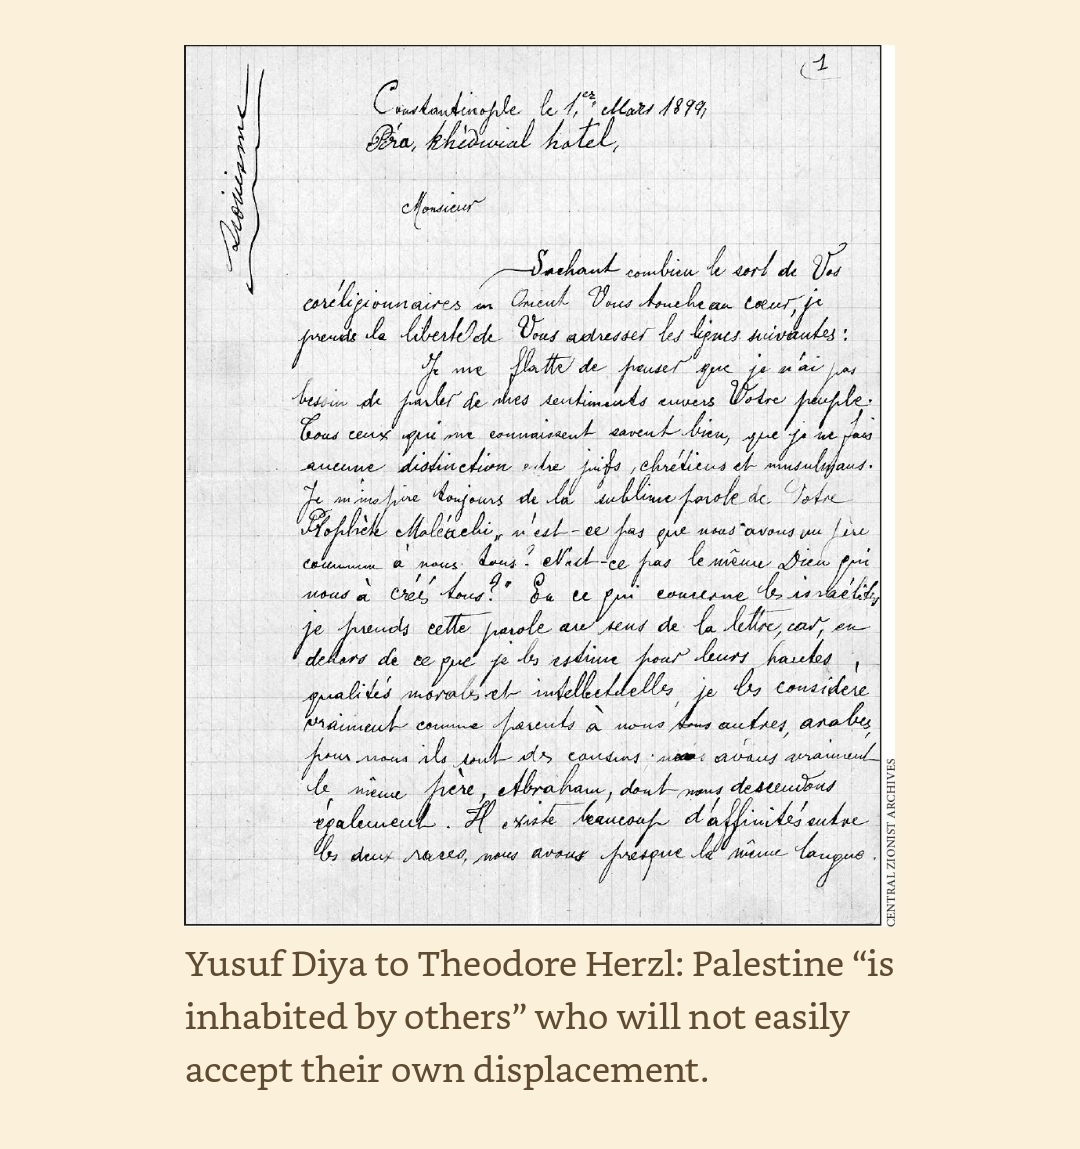 1
Constantinople le 1er Mars 1899,
Péra, khédivial hotel,
Sionisme
Monsieur
Sachant combien le sort de Vos
coréligionnaires en Orient Vous touche au cœur, je
prends la liberté de Vous adresser les lignes suivantes:
Je me flatte de penser que je n'ai pas
besoin de parler de mes sentiments envers Votre peuple.
Tous ceux qui me connaissent savent bien, que je ne fais
aucune distinction entre juifs, chrétiens et musulmans.
Je m'inspire toujours de la sublime parole de Votre
Prophète Maléachi, „n'est-ce pas que nous avons un père
commun à nous tous? N'est-ce pas le même Dieu qui
nous à créés tous?" En ce qui concerne les israélites
je prends cette parole au sens de la lettre, car, en
dehors de ce que je les estime pour leurs hautes
qualités morales et intellectuelles, je les considère
vraiment comme parents à nous tous autres, arabes,
pour nous ils sont des cousins; nous avons vraiment
le même père, Abraham, dont nous descendons
également. Il existe beaucoup d'affinités entre
les deux races, nous avons presque la même langue.
CENTRAL ZIONIST ARCHIVES
Yusuf Diya to Theodore Herzl: Palestine “is
inhabited by others” who will not easily
accept their own displacement.